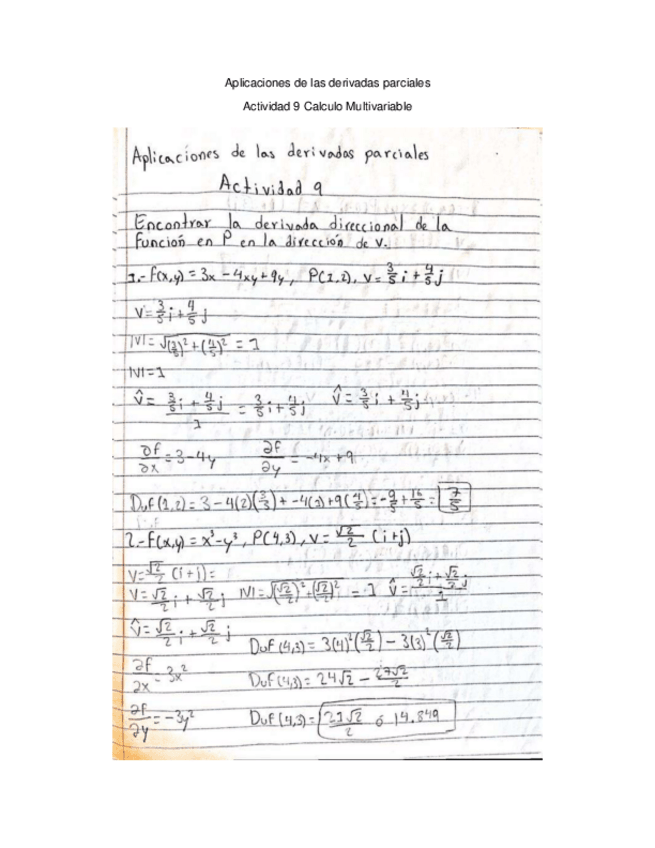 Aplicaciones de las derivadas parciales
Actividad 9 Calculo Multivariable
Aplicaciones de las derivadas parciales
Actividad 9
Encontrar la derivada direccional de la
función en P en la dirección de v.
1.- f(x,y) = 3x - 4xy + 9y, P(1,2), v = 3/5 i + 4/5 j
V = 3/5 i + 4/5 j
|V| = √((3/5)² + (4/5)²) = 1
|V| = 1
v̂ = (3/5 i + 4/5 j)/1 = 3/5 i + 4/5 j v̂ = 3/5 i + 4/5 j
∂f/∂x = 3 - 4y ∂f/∂y = -4x + 9
Duf(1,2) = 3 - 4(2)(3/5) + -4(1) + 9(4/5) = -9/5 + 16/5 = 7/5
2.- f(x,y) = x³ - y³, P(4,3), v = √2/2 (i+j)
V = √2/2 (i+j) =
V = √2/2 i + √2/2 j |V| = √((√2/2)² + (√2/2)²) = 1 v̂ = (√2/2 i + √2/2 j)/1
v̂ = √2/2 i + √2/2 j Duf(4,3) = 3(4)²(√2/2) - 3(3)²(√2/2)
∂f/∂x = 3x² Duf(4,3) = 24√2 - 27√2/2
∂f/∂y = -3y² Duf(4,3) = 21√2/2 ó 14.849